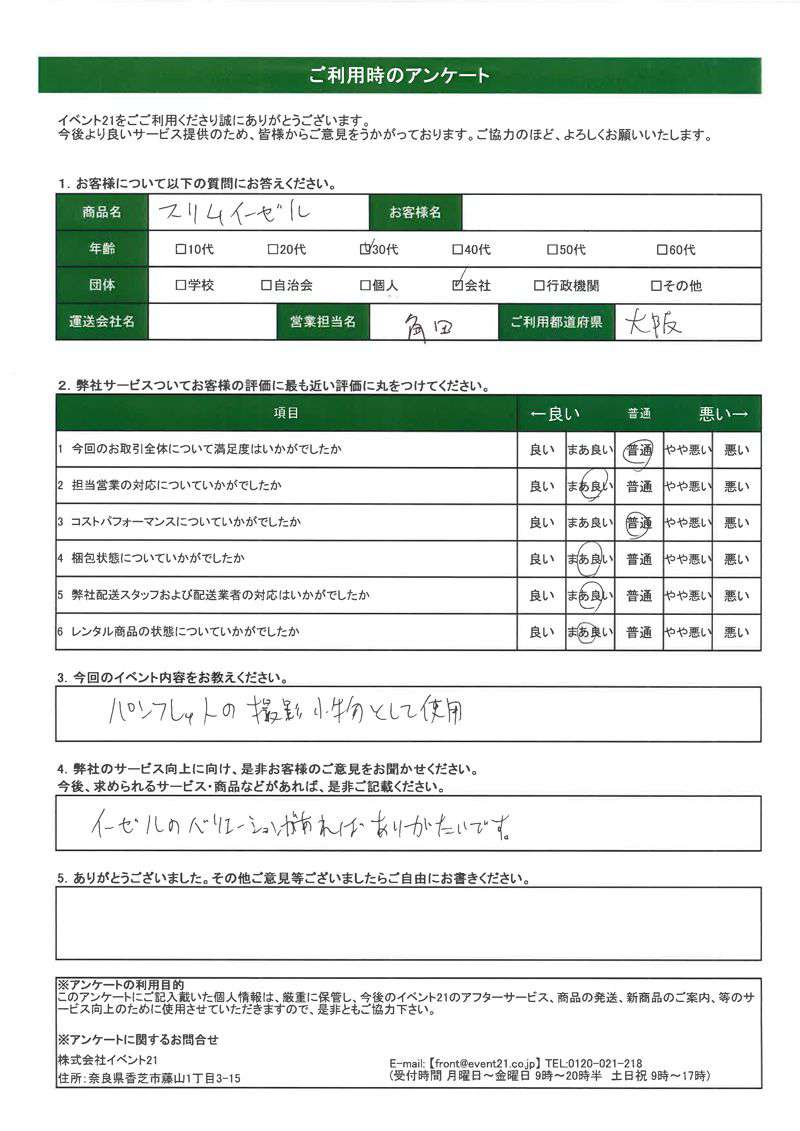 ご利用時のアンケート
イベント21をご利用くださり誠にありがとうございます。
今後より良いサービス提供のため、皆様からご意見をうかがっております。ご協力のほど、よろしくお願いいたします。
1. お客様について以下の質問にお答えください。
商品名 スリムイーゼル お客様名
年齢 □10代 □20代 ☑30代 □40代 □50代 □60代
団体 □学校 □自治会 □個人 ☑会社 □行政機関 □その他
運送会社名 営業担当名 角田 ご利用都道府県 大阪
2. 弊社サービスついてお客様の評価に最も近い評価に丸をつけてください。
項目 ←良い 普通 悪い→
1 今回のお取引全体について満足度はいかがでしたか 良い まあ良い 普通 やや悪い 悪い
2 担当営業の対応についていかがでしたか 良い まあ良い 普通 やや悪い 悪い
3 コストパフォーマンスについていかがでしたか 良い まあ良い 普通 やや悪い 悪い
4 梱包状態についていかがでしたか 良い まあ良い 普通 やや悪い 悪い
5 弊社配送スタッフおよび配送業者の対応はいかがでしたか 良い まあ良い 普通 やや悪い 悪い
6 レンタル商品の状態についていかがでしたか 良い まあ良い 普通 やや悪い 悪い
3. 今回のイベント内容をお教えください。
パンフレットの撮影小物として使用
4. 弊社のサービス向上に向け、是非お客様のご意見をお聞かせください。
今後、求められるサービス・商品などがあれば、是非ご記載ください。
イーゼルのバリエーションがあればありがたいです。
5. ありがとうございました。その他ご意見等ございましたらご自由にお書きください。
※アンケートの利用目的
このアンケートにご記入戴いた個人情報は、厳重に保管し、今後のイベント21のアフターサービス、商品の発送、新商品のご案内、等のサ
ービス向上のために使用させていただきますので、是非ともご協力下さい。
※アンケートに関するお問合せ
株式会社イベント21
住所：奈良県香芝市藤山1丁目3-15
E-mail:【front@event21.co.jp】 TEL:0120-021-218
(受付時間 月曜日～金曜日 9時～20時半 土日祝 9時～17時)